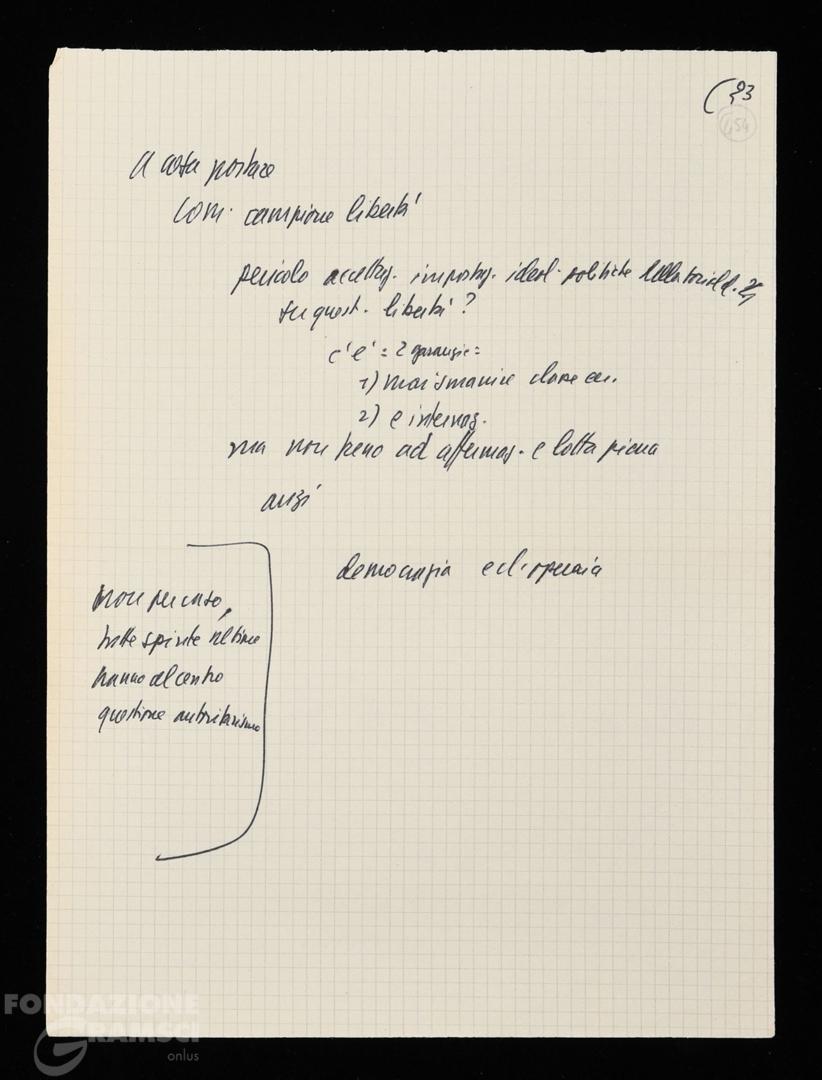 (93
454
A cosa portare
com. campione libertà
pericolo accettaz. impostaz. ideol. politiche
su quest. libertà?
c'è = 2 garanzie =
1) mai smanire classe
2) e internaz.
ma non freno ad affermaz. e lotta piena
anzi
democrazia e cl. operaia
non per caso,
tutte spinte ultime
hanno al centro
questione autoritarismo
FONDAZIONE
GRAMSCI
onlus